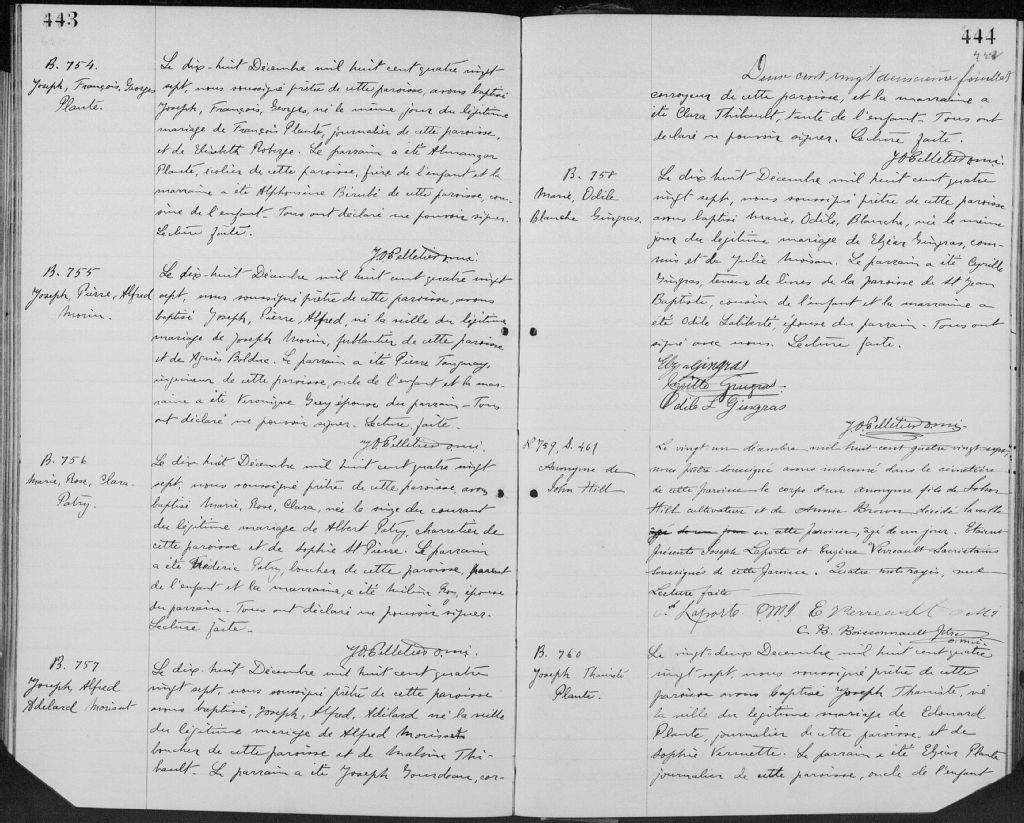 443
B. 754.
Joseph, François, Georges
Plante.
Le dix-huit Décembre mil huit cent quatre vingt
sept, nous soussigné prêtre de cette paroisse, avons baptisé
Joseph, François, Georges, né le même jour du légitime
mariage de François Plante, journalier de cette paroisse,
et de Elisabeth Roberge. Le parrain a été Almanzor
Plante, écolier de cette paroisse, frère de l'enfant et la
marraine a été Alphonsine Bérubé de cette paroisse, cou-
sine de l'enfant. Tous ont déclaré ne pouvoir signer.
Lecture faite.
J O Pelletier o.m.i.
B. 755
Joseph, Pierre, Alfred
Morin.
Le dix-huit Décembre mil huit cent quatre vingt
sept, nous soussigné prêtre de cette paroisse, avons
baptisé Joseph, Pierre, Alfred, né la veille du légitime
mariage de Joseph Morin, ferblantier de cette paroisse
et de Agnès Bolduc. Le parrain a été Pierre Tanguay,
ingénieur de cette paroisse, oncle de l'enfant et la mar-
raine a été Veronique Guy épouse du parrain - Tous
ont déclaré ne pouvoir signer. Lecture faite.
J O Pelletier o.m.i.
B. 756
Marie, Rose, Clara.
Patry.
Le dix-huit Décembre mil huit cent quatre vingt
sept, nous soussigné prêtre de cette paroisse, avons
baptisé Marie, Rose, Clara, née le seize du courant
du légitime mariage de Albert Patry, charretier de
cette paroisse et de Sophie St Pierre. Le parrain
a été Frédéric Patry, boucher de cette paroisse, parent
de l'enfant et la marraine, a été Roy, épouse
du parrain - Tous ont déclaré ne pouvoir signer.
Lecture faite -
J O Pelletier o.m.i.
B. 757
Joseph Alfred
Adélard Morisset
Le dix-huit Décembre mil huit cent quatre
vingt sept, nous soussigné prêtre de cette paroisse
avons baptisé, Joseph, Alfred, Adélard né la veille
du légitime mariage de Alfred Morisset
boucher de cette paroisse et de Malvina Thi-
bault. Le parrain a été Joseph Gourdeau, cor-
444
Deux cent vingt deuxième feuillet
corroyeur de cette paroisse, et la marraine a
été Clara Thibault, tante de l'enfant. Tous ont
déclaré ne pouvoir signer. Lecture faite.
J O Pelletier o.m.i.
B. 758
Marie, Odile
Blanche Gingras.
Le dix huit Décembre mil huit cent quatre
vingt sept, nous soussigné prêtre de cette paroisse
avons baptisé Marie, Odile, Blanche, née le même
jour du légitime mariage de Elzéar Gingras, com-
mis et de Julie Moisan. Le parrain a été Cyrille
Gingras, teneur de livres de la paroisse de St Jean
Baptiste, cousin de l'enfant et la marraine a
été Odile Laliberté, épouse du parrain - Tous ont
signé avec nous. Lecture faite.
Gingras
Cyrille Gingras
Odile L Gingras
J O Pelletier o.m.i.
N° 759, S. 461
Anonyme de
John Hill
Le vingt un décembre mil huit cent quatre vingt sept,
nous prêtre soussigné avons inhumé dans le cimetière
de cette paroisse le corps d'un anonyme fils de John
Hill cultivateur et de Annie Brown, décédé la veille
en cette paroisse, âgé de un jour. Etaient
présents Joseph Laporte et Eugène Verreault Sacristains
soussignés de cette paroisse. Quatre mots rayés, nul
Lecture faite
Laporte E Verreault
C. B. Boissonnault Ptre
o.m.i.
B. 760
Joseph
Plante.
Le vingt-deux Décembre mil huit cent quatre
vingt sept, nous soussigné prêtre de cette
paroisse avons baptisé Joseph né
la veille du légitime mariage de Edouard
Plante, journalier de cette paroisse et de
Sophie Vermette. Le parrain a été Elzéar Plante
journalier de cette paroisse, oncle de l'enfant